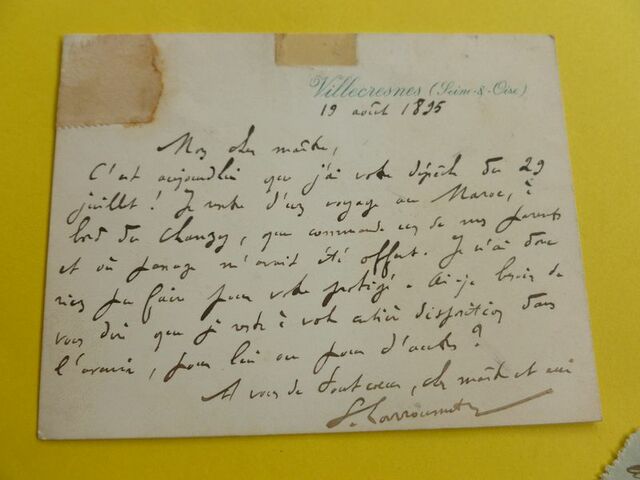 Villecresnes (Seine-&-Oise)
19 août 1895
Mon cher maître,
C'est aujourd'hui que j'ai votre dépêche du 29
juillet ! Je rentre d'un voyage au Maroc, à
bord du Chanzy, que commande un de mes parents
et où passage m'avait été offert. Je n'ai donc
rien pu faire pour votre protégé. Ai-je besoin de
vous dire que je reste à votre entière disposition dans
l'avenir, pour lui ou pour d'autres ?
A vous de tout coeur, cher maître et ami
G. Larroumet